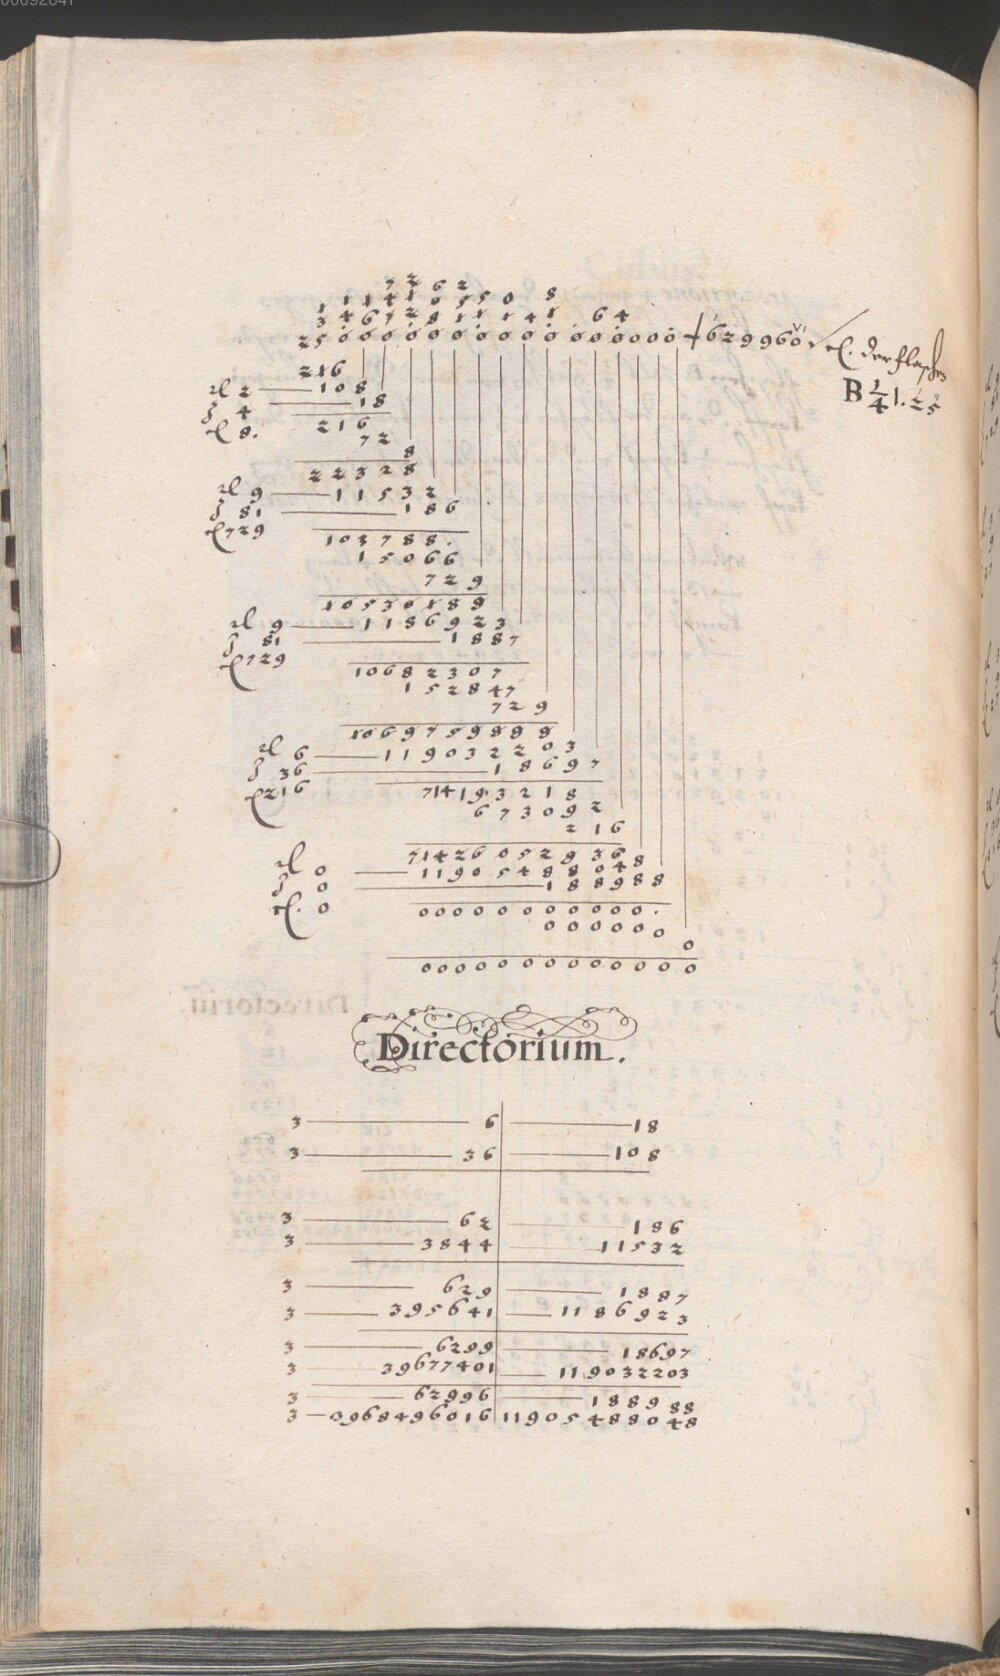 7 2 6 2
1 1 4 1 0 5 5 0 8
3 4 6 1 2 8 1 1 1 4 1 6 4
2 5 0 0 0 0 0 0 0 0 0 0 0 0 0 0 0 0 629960 . der flaschen
B 1/4 1. 25
216
2 108
4 18
8. 216
72
8
22328
9 11532
81 186
729 103788.
15066
729
10536189
9 1186923
81 1887
729 10682307
152847
729
10697598 9 9
6 119032203
36 18697
216 714193218
673092
216
71426052936 8
0 11905488048
0 188988
0 00000000000.
000000
0
0000000000000
Directorium.
3 6 18
3 36 108
3 62 186
3 3844 11532
3 629 1887
3 395641 1186923
3 6299 18697
3 39677401 119032203
3 62996 188988
3 3968496016 11905488048